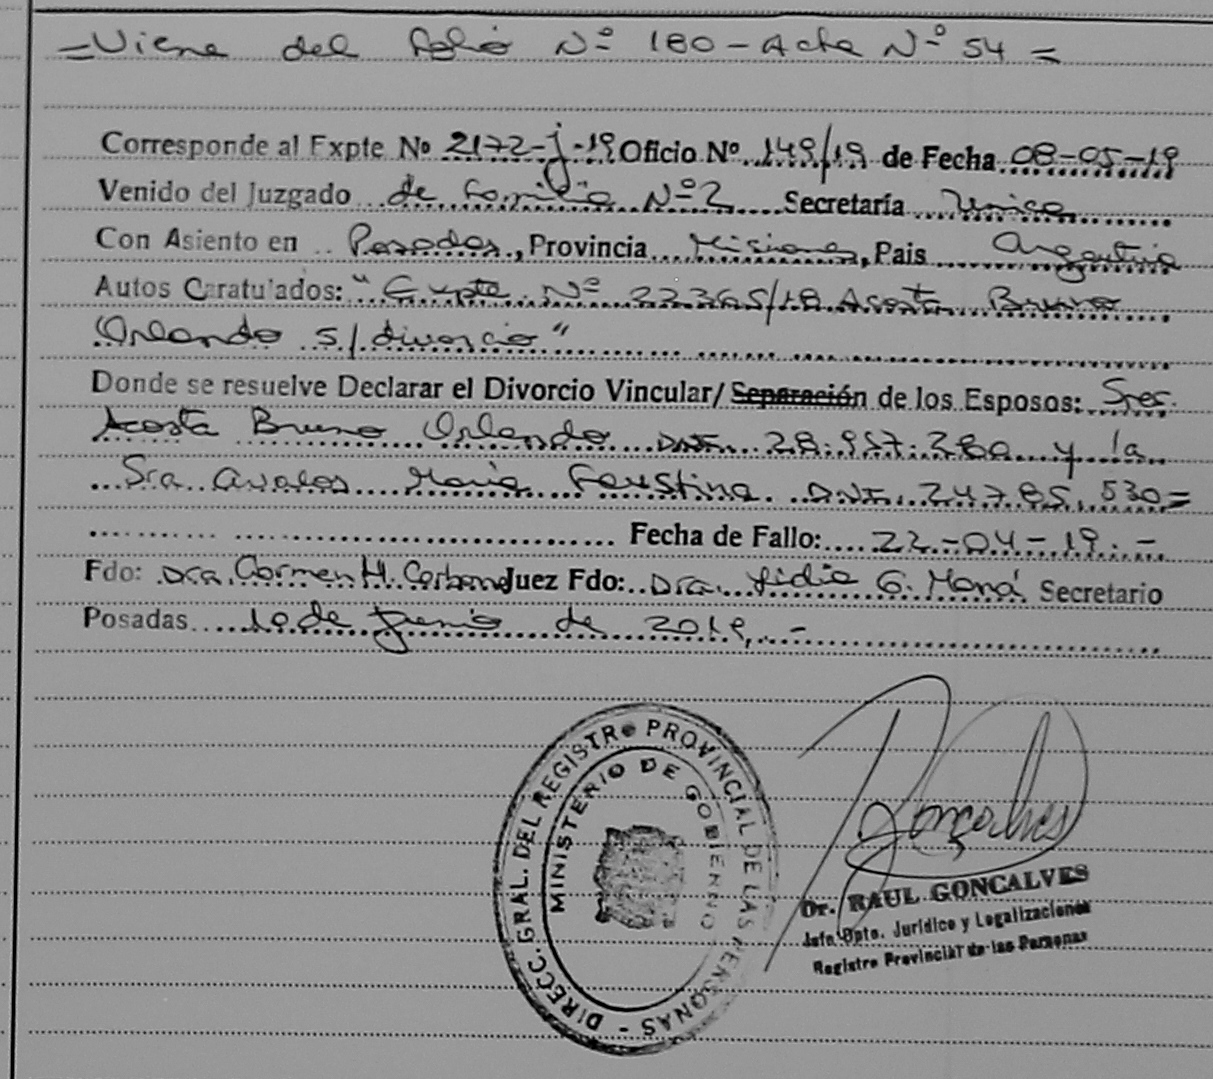 =Viene del folio Nº 180 - Acta Nº 54 =
Corresponde al Expte Nº 2172-J-19 Oficio Nº 149/19 de Fecha 08-05-19
Venido del Juzgado de Familia Nº 2 Secretaría Unica
Con Asiento en Posadas, Provincia Misiones, Pais Argentina
Autos Caratulados: "Expte Nº 22365/18 Acosta Bruno
Orlando s/ divorcio"
Donde se resuelve Declarar el Divorcio Vincular/ Separación de los Esposos: Sres.
Acosta Bruno Orlando DNI. 28.957.380 y la
Sra Avalos Maria Faustina DNI. 24.785.530=
Fecha de Fallo: 22-04-19.-
Fdo: Dra. Carmen H. Juez Fdo: Dra. Lidia G. Secretario
Posadas 10 de Junio de 2019.-
DIRECC. GRAL. DEL REGISTRO PROVINCIAL DE LAS PERSONAS -
MINISTERIO DE GOBIERNO
Goncalves
Dr. RAUL GONCALVES
Jefe Dpto. Jurídico y Legalizaciones
Registro Provincial de las Personas